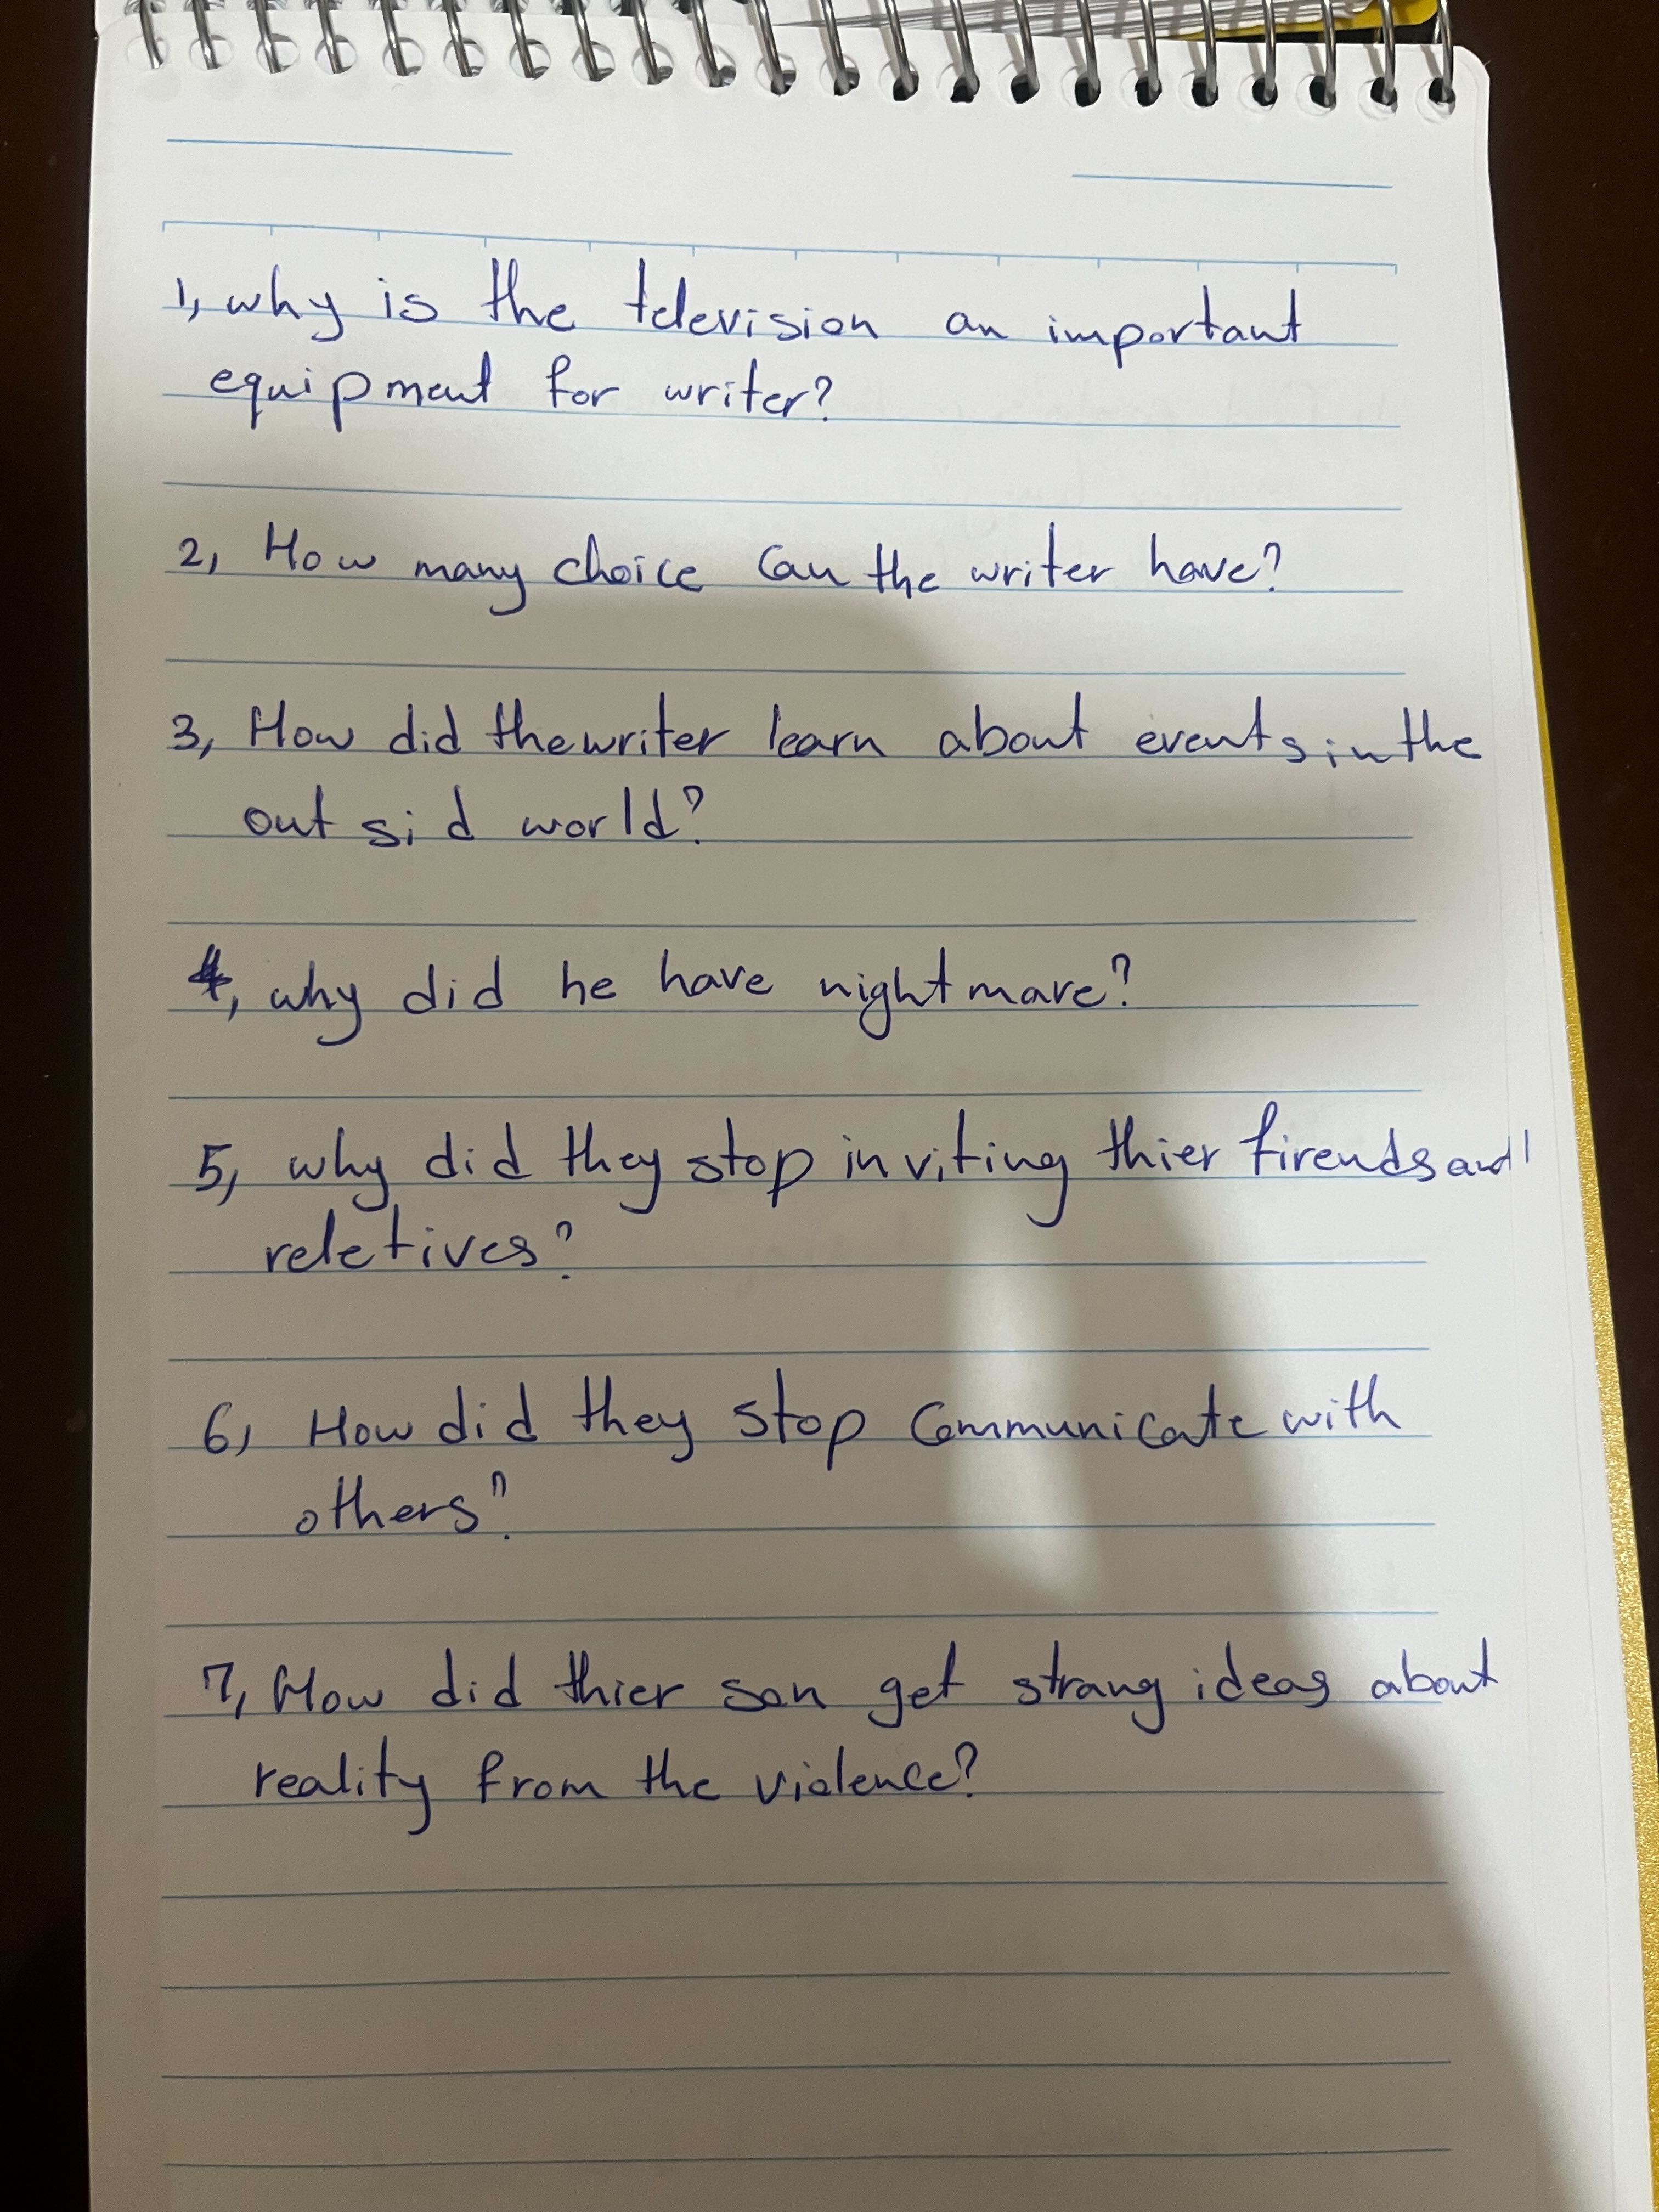 1, why is the television an important
equipment for writer?
2, How many choice can the writer have?
3, How did the writer learn about events in the
out sid world?
4, why did he have nightmare?
5, why did they stop inviting thier firends and
reletives?
6, How did they stop communicate with
others?
7, How did thier son get strang ideas about
reality from the violence?